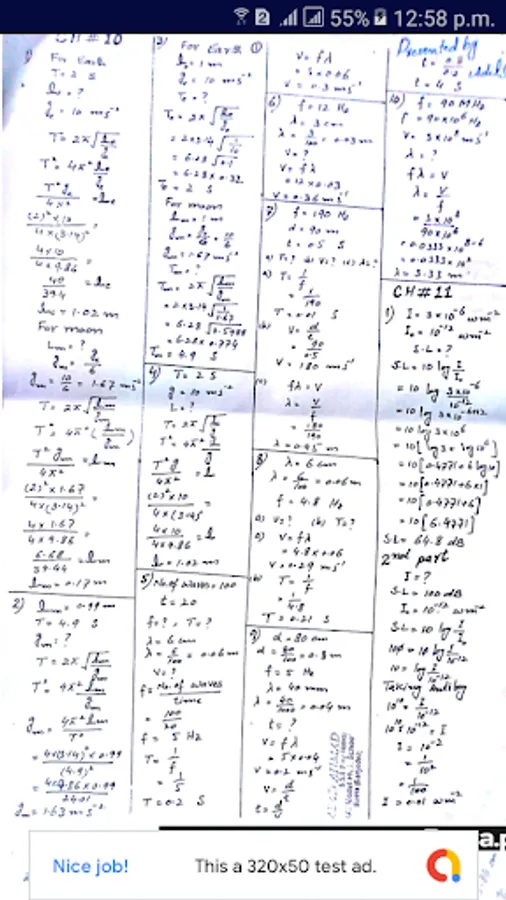 55% 12:58 p.m.
CH # 10
1) For Earth
T = 2 S
le = ?
ge = 10 ms⁻²
T = 2π √(le/ge)
T² = 4π² le/ge
T² ge / 4π² = le
(2)² × 10 / 4 × (3.14)² =
4 × 10 / 4 × 9.86
40 / 39.4 = le
le = 1.02 m
For moon
Lm = ?
gm = ge/6
gm = 10/6 = 1.67 ms⁻²
T = 2π √(lm/gm)
T² = 4π² (lm/gm)
T² gm / 4π² = lm
(2)² × 1.67 / 4 × (3.14)² =
4 × 1.67 / 4 × 9.86
6.68 / 39.44 = lm
lm = 0.17 m
2) lm = 0.99 m
T = 4.9 S
gm = ?
T = 2π √(lm/gm)
T² = 4π² lm/gm
gm = 4π² lm / T²
= 4 × (3.14)² × 0.99 / (4.9)²
= 4 × 9.86 × 0.99 / 24.01
gm = 1.63 ms⁻²
3) For Earth ①
le = 1 m
ge = 10 ms⁻²
Te = ?
Te = 2π √(le/ge)
= 2 × 3.14 √(1/10)
= 6.28 √0.1
= 6.28 × 0.32
Te = 2 S
For moon
lm = 1 m
gm = ge/6 = 10/6
gm = 1.67 ms⁻²
Tm = ?
Tm = 2π √(lm/gm)
= 2 × 3.14 √(1/1.67)
= 6.28 √0.5988
= 6.28 × 0.774
Tm = 4.9 S
4) T = 2 S
g = 10 ms⁻²
L = ?
T = 2π √(l/g)
T² = 4π² l/g
T² g / 4π² = l
(2)² × 10 / 4 × (3.14)² =
4 × 10 / 4 × 9.86 = l
l = 1.02 m
5) No. of waves = 100
t = 20
f = ? T = ?
λ = 6 cm
λ = 6/100 = 0.06 m
V = ?
f = No. of waves / time
= 100/20
f = 5 Hz
T = 1/f
= 1/5
T = 0.2 S
V = fλ
= 5 × 0.06
V = 0.3 ms⁻¹
6) f = 12 Hz
λ = 3 cm
λ = 3/100 = 0.03 m
V = ?
V = fλ
= 12 × 0.03
V = 0.36 ms⁻¹
7) f = 190 Hz
d = 90 m
t = 0.5 S
a) T = ? b) V = ? c) λ = ?
a) T = 1/f
= 1/190
T = 0.01 S
(b) V = d/t
= 90/0.5
V = 180 ms⁻¹
(c) fλ = V
λ = V/f
= 180/190
λ = 0.95 m
8) λ = 6 cm
λ = 6/100 = 0.06 m
f = 4.8 Hz
a) V = ? (b) T = ?
a) V = fλ
= 4.8 × 0.06
V = 0.29 ms⁻¹
(b) T = 1/f
= 1/4.8
T = 0.21 S
9) d = 80 cm
d = 80/100 = 0.8 m
f = 5 Hz
λ = 40 mm
λ = 40/1000 = 0.04 m
t = ?
V = fλ
= 5 × 0.04
V = 0.2 ms⁻¹
V = d/t
t = d/V
Presented by
t = 0.8/0.2
t = 4 S
10) f = 90 MHz
f = 90 × 10⁶ Hz
V = 3 × 10⁸ ms⁻¹
λ = ?
fλ = V
λ = V/f
= 3 × 10⁸ / 90 × 10⁶
= 0.0333 × 10⁸⁻⁶
= 0.0333 × 10²
λ = 3.33 m
CH # 11
1) I = 3 × 10⁻⁶ wm⁻²
I₀ = 10⁻¹² wm⁻²
S.L = ?
S.L = 10 log I/I₀
= 10 log 3×10⁻⁶/10⁻¹²
= 10 log 3×10⁻⁶⁺¹²
= 10 log 3×10⁶
= 10 [log 3 + log 10⁶]
= 10 [0.4771 + 6 log 10]
= 10 [0.4771 + 6×1]
= 10 [0.4771 + 6]
= 10 [6.4771]
S.L = 64.8 dB
2nd part
I = ?
S.L = 100 dB
I₀ = 10⁻¹² wm⁻²
S.L = 10 log I/I₀
100 = 10 log I/10⁻¹²
10 = log I/10⁻¹²
Taking Antilog
10¹⁰ = I/10⁻¹²
10¹⁰ × 10⁻¹² = I
I = 10⁻²
= 1/10²
= 1/100
I = 0.01 wm⁻²
Nice job!
This a 320x50 test ad.